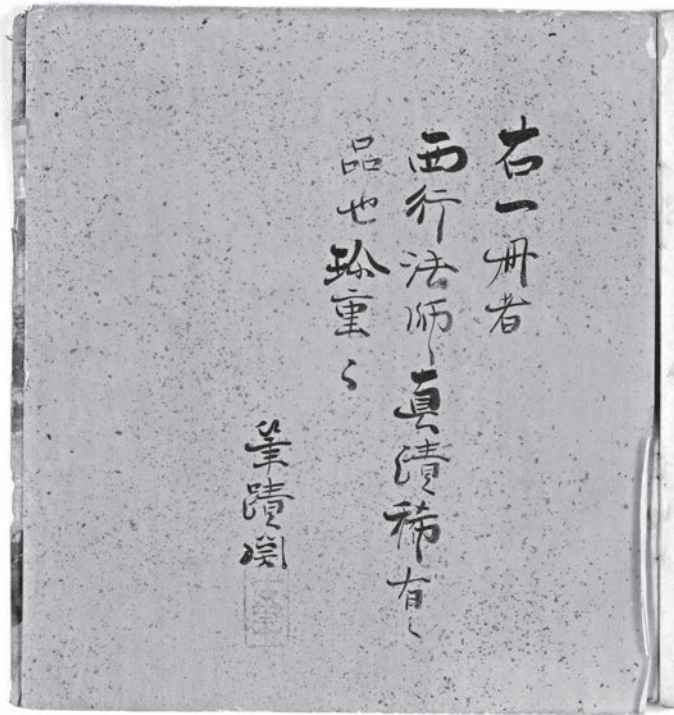 右一冊者
西行法師真漬稀有之
品也珍重々
筆蹟関